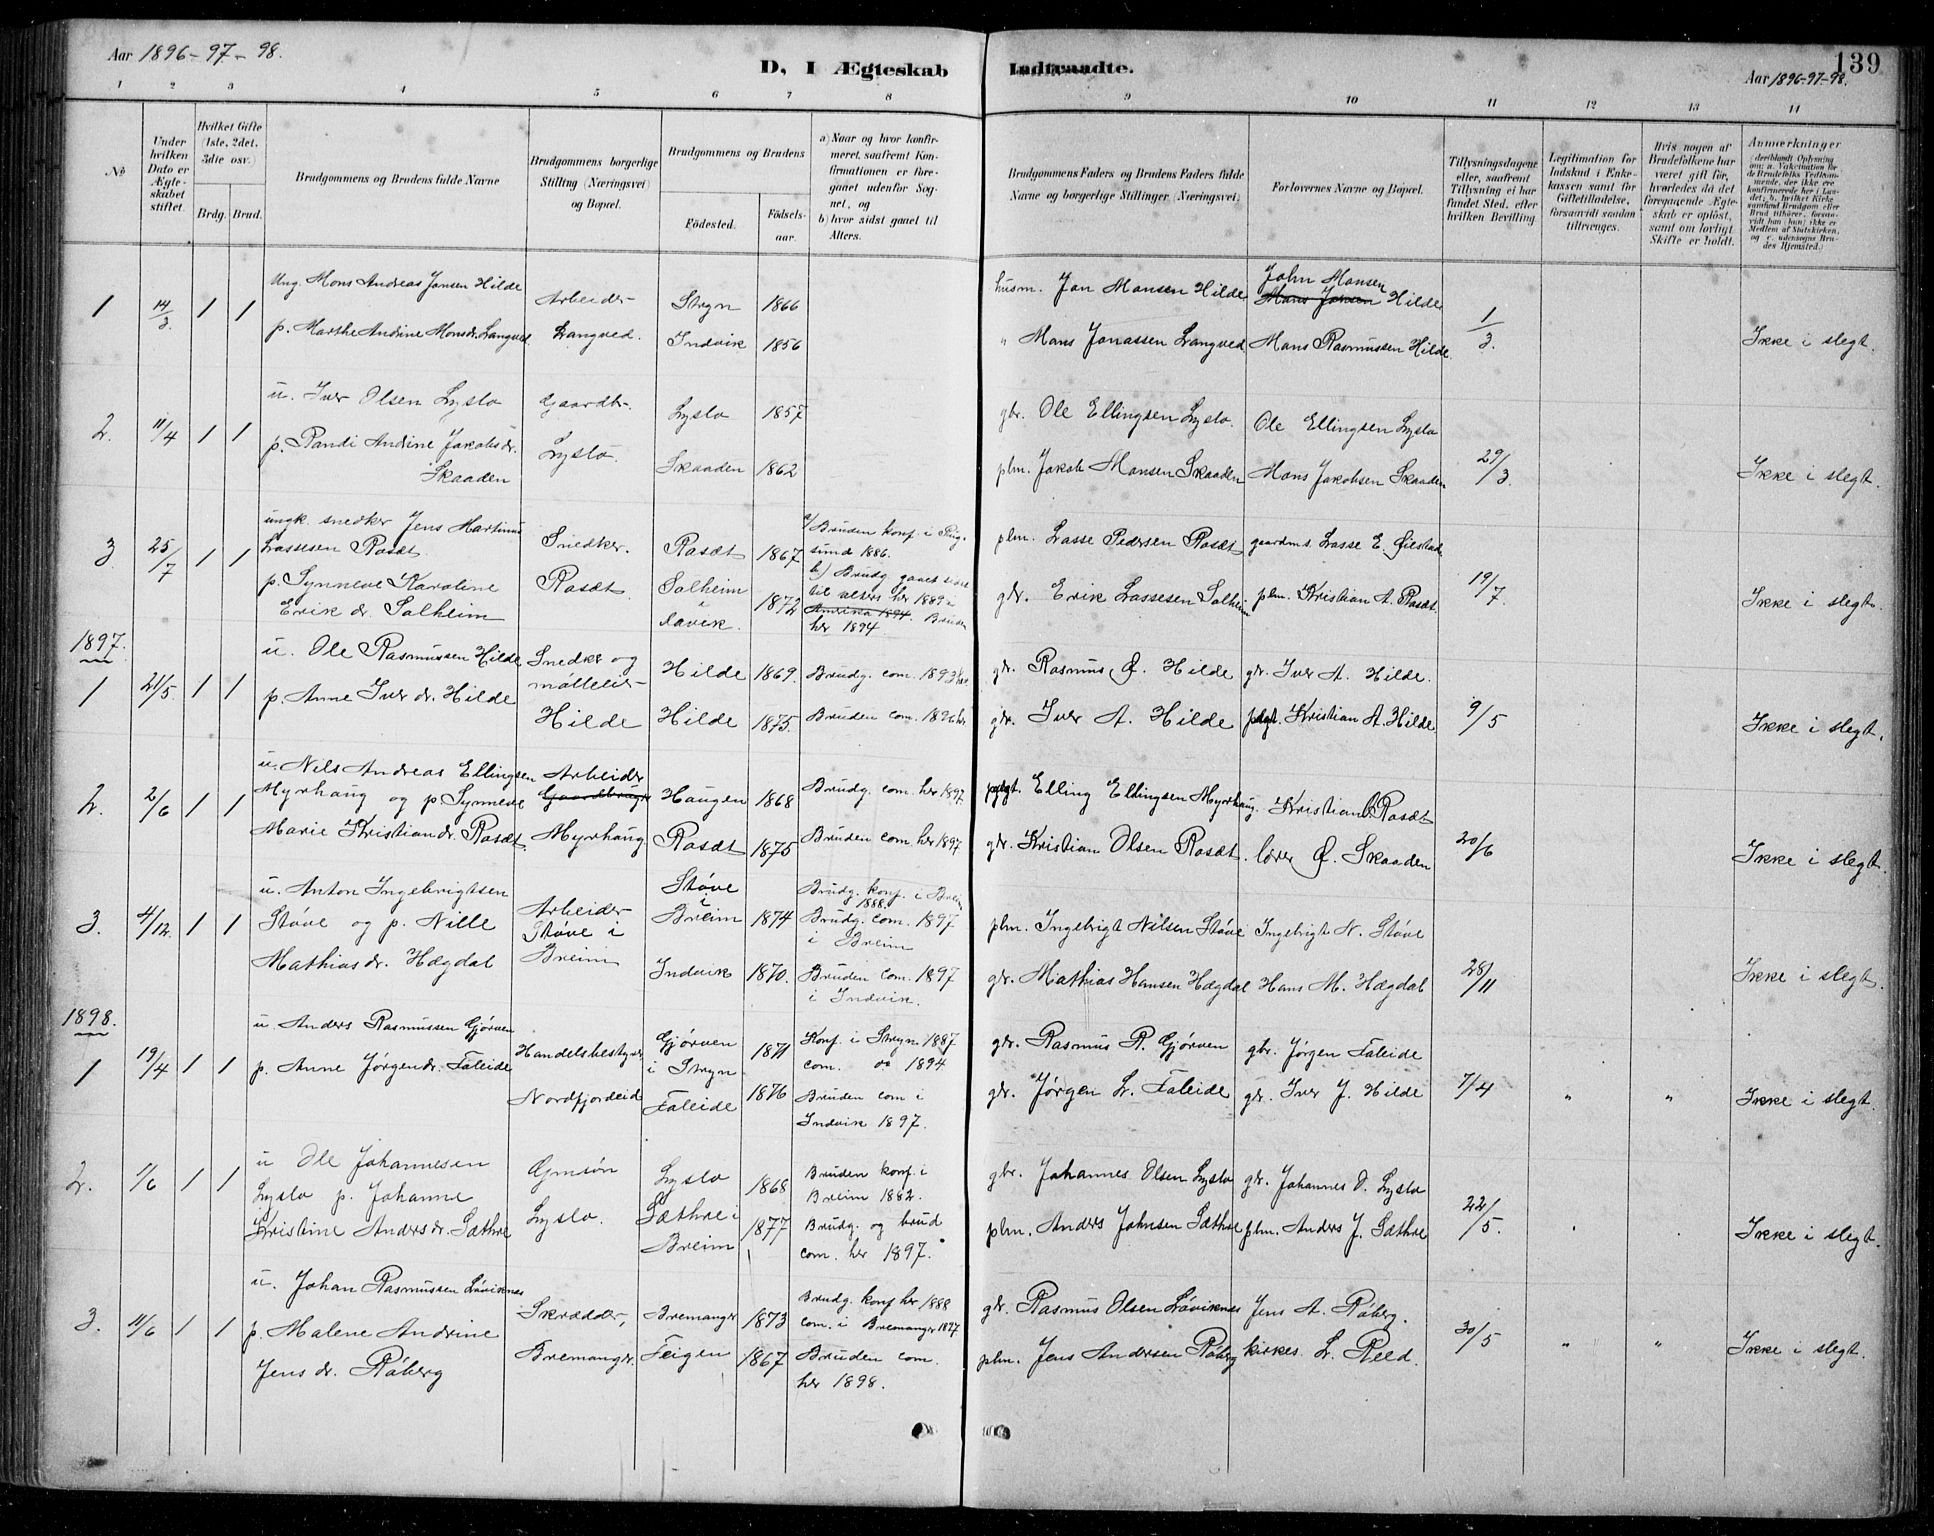 Aar 1896-97-98.
D, I Ægteskab Indtraadte.
139
Aar 1896-97-98.
1 2 3 4 5 6 7 8 9 10 11 12 13 14
No
Under hvilken Dato er Ægteskabet stiftet.
Hvilket Gifte (1ste, 2det, 3die osv.)
Brdg. Brud.
Brudgommens og Brudens fulde Navne
Brudgommens borgerlige Stilling (Næringsvei) og Bopæl.
Brudgommens og Brudens
Fødested.
Fødselsaar.
a) Naar og hvor konfirmeret, saafremt Konfirmationen er foregaaet udenfor Sognet, og
b) hvor sidst gaaet til Alters.
Brudgommens Faders og Brudens Faders fulde Navne og borgerlige Stillinger (Næringsvei)
Forlovernes Navne og Bopæl.
Tillysningsdagene eller, saafremt Tillysning ei har fundet Sted, efter hvilken Bevilling.
Legitimation for Indskud i Enkekassen samt for Giftetilladelse, forsaavidt saadan tiltrænges.
Hvis nogen af Brudefolkene har været gift før, hvorledes da det foregaaende Ægteskab er opløst, samt om lovligt Skifte er holdt.
Anmærkninger
1 14/3 1 1
Ung. Mons Andreas Jonsen Hilde
p. Marthe Andine Monsdr. Langved
Arbeider
Langved.
Stryn 1866
Indvik 1856
husm. Jon Monsen Hilde
" Mons Jonassen Langved
John Monsen
Mons Jonsen Hilde
Mons Rasmussen Hilde
1/3.
Ikke i slegt.
2. 11/4 1 1
u. Iver Olsen Lyslo
p. Randi Andine Jakobsdr.
Skaaden
Gaardbr.
Lyslo.
Lyslo 1857
Skaaden 1862
gbr. Ole Ellingsen Lyslo.
plm. Jakob Monsen Skaaden
Ole Ellingsen Lyslo
Mons Jakobsen Skaaden
29/3.
Ikke i slegt.
3. 25/7 1 1
ungk. snedker Jens Martinus
Lassesen Rosæt
p. Synneve Karoline
Erik dr. Solheim
Snedker.
Rosæt.
Rosæt 1867
Solheim
i
Davik. 1872
a) Bruden konf. i Rug-
sund 1886.
b.) Brudg gaaet sidst
til alters her 1889 i
Amerika 1894. Bruden
her 1894.
plm. Lasse Pedersen Rosæt
gbr. Erik Lassesen Solheim
gaardms. Lasse E.
plm. Kristian A. Rosæt
19/7.
Ikke i slegt.
1897.
1 21/5 1 1
u. Ole Rasmussen Hilde
p. Anne Iver dr. Hilde
Snedker og
Hilde
Hilde 1869.
Hilde 1875.
Brudg. com. 1893 her
Bruden com. 1896 her
gbr. Rasmus O. Hilde
gbr. Iver A. Hilde
gbr. Iver A. Hilde.
Kristian A. Hilde
9/5
Ikke i slegt.
2. 2/6 1 1
u. Nils Andreas Ellingsen
Myrhaug og p Synneve
Marie Kristiandr. Rosæt
Arbeider
Gaardbruger
Myrhaug
Haugen 1868
Rosæt 1875
Brudg. com. her 1897.
Bruden com. her 1897
Elling Ellingsen Myrhaug.
gbr. Kristian Olsen Rosæt.
Kristian O. Rosæt
lærer O. Skaaden
20/6
Ikke i slegt
3. 4/12. 1 1
u. Anton Ingebrigtsen
Støve og p. Nille
Mathias dr. Hægdal
Arbeider
Støve i
Breim
Støve
i
Breim 1874
Indvik 1870.
Brudg. konf. i Breim
1888.
Brudg. com. 1897
i Breim
Bruden com. 1897
i Indvik.
plm. Ingebrigt Nilsen Støve
gbr. Mathias Hansen Hægdal
Ingebrigt N. Støve
Hans M. Hægdal
28/11
Ikke i slegt.
1898.
1 19/4 1 1
u. Anders Rasmussen Gjørven
p. Anne Jørgendr. Faleide
Handelsbestyrer
Nordfjordeid
Gjørven
i Stryn 1871
Faleide 1876
Konf. i Stryn 1887
com. do 1894
Bruden com i
Indvik 1897.
gbr. Rasmus R. Gjørven
gbr. Jørgen L. Faleide
gbr. Jørgen Faleide
gbr. Iver J. Hilde
7/4 " "
Ikke i slegt.
2. 1/6 1 1
u Ole Johannesen
Lyslo p. Johanne
Kristine Anders dr. Sæthre
Gmsøn
Lyslo.
Lyslo 1868
Sæthre i
Breim 1877
Bruden konf. i
Breim 1882.
Brudg. og brud
com. her 1897.
gbr. Johannes Olsen Lyslo
plm. Anders Johnsen Sæthre
gbr. Johannes O. Lyslo
plm. Anders J. Sæthre
22/5.
Ikke i slegt.
3. 11/6 1 1
u. Johan Rasmussen Løviknes
p. Malene Andrine
Jens dr. Røberg
Skrædder,
Bremanger.
Bremanger 1873
Feigen 1867
Brudg. konf her 1888
com. i Bremanger 1897
Bruden com.
her 1898.
gbr. Rasmus Olsen Løviknes
plm. Jens Andersen Røberg
Jens A. Røberg.
kirkes. L. Reed.
30/5 " "
Ikke i slegt.